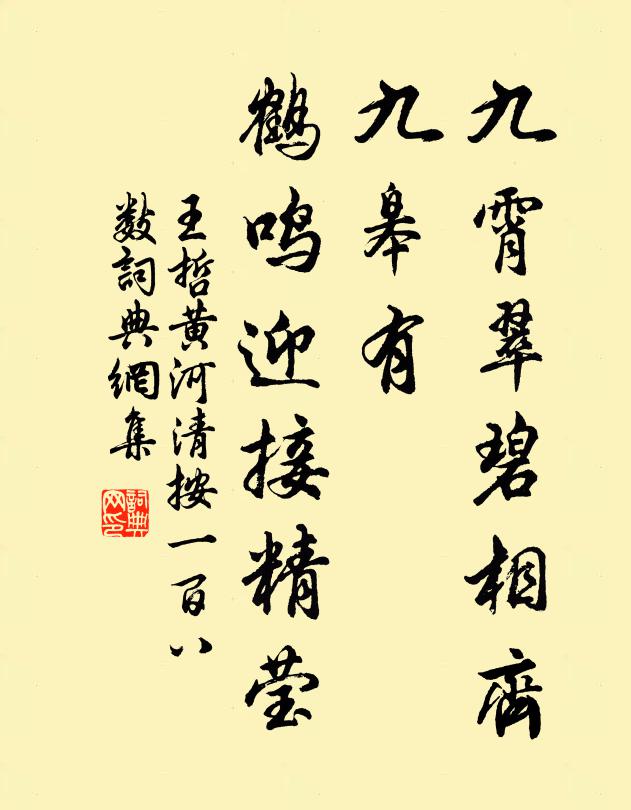 九霄翠碧相齊
九皋有
鹤鸣迎接精莹
王哲黄河清按一百八
数詞典網集
詞典网印